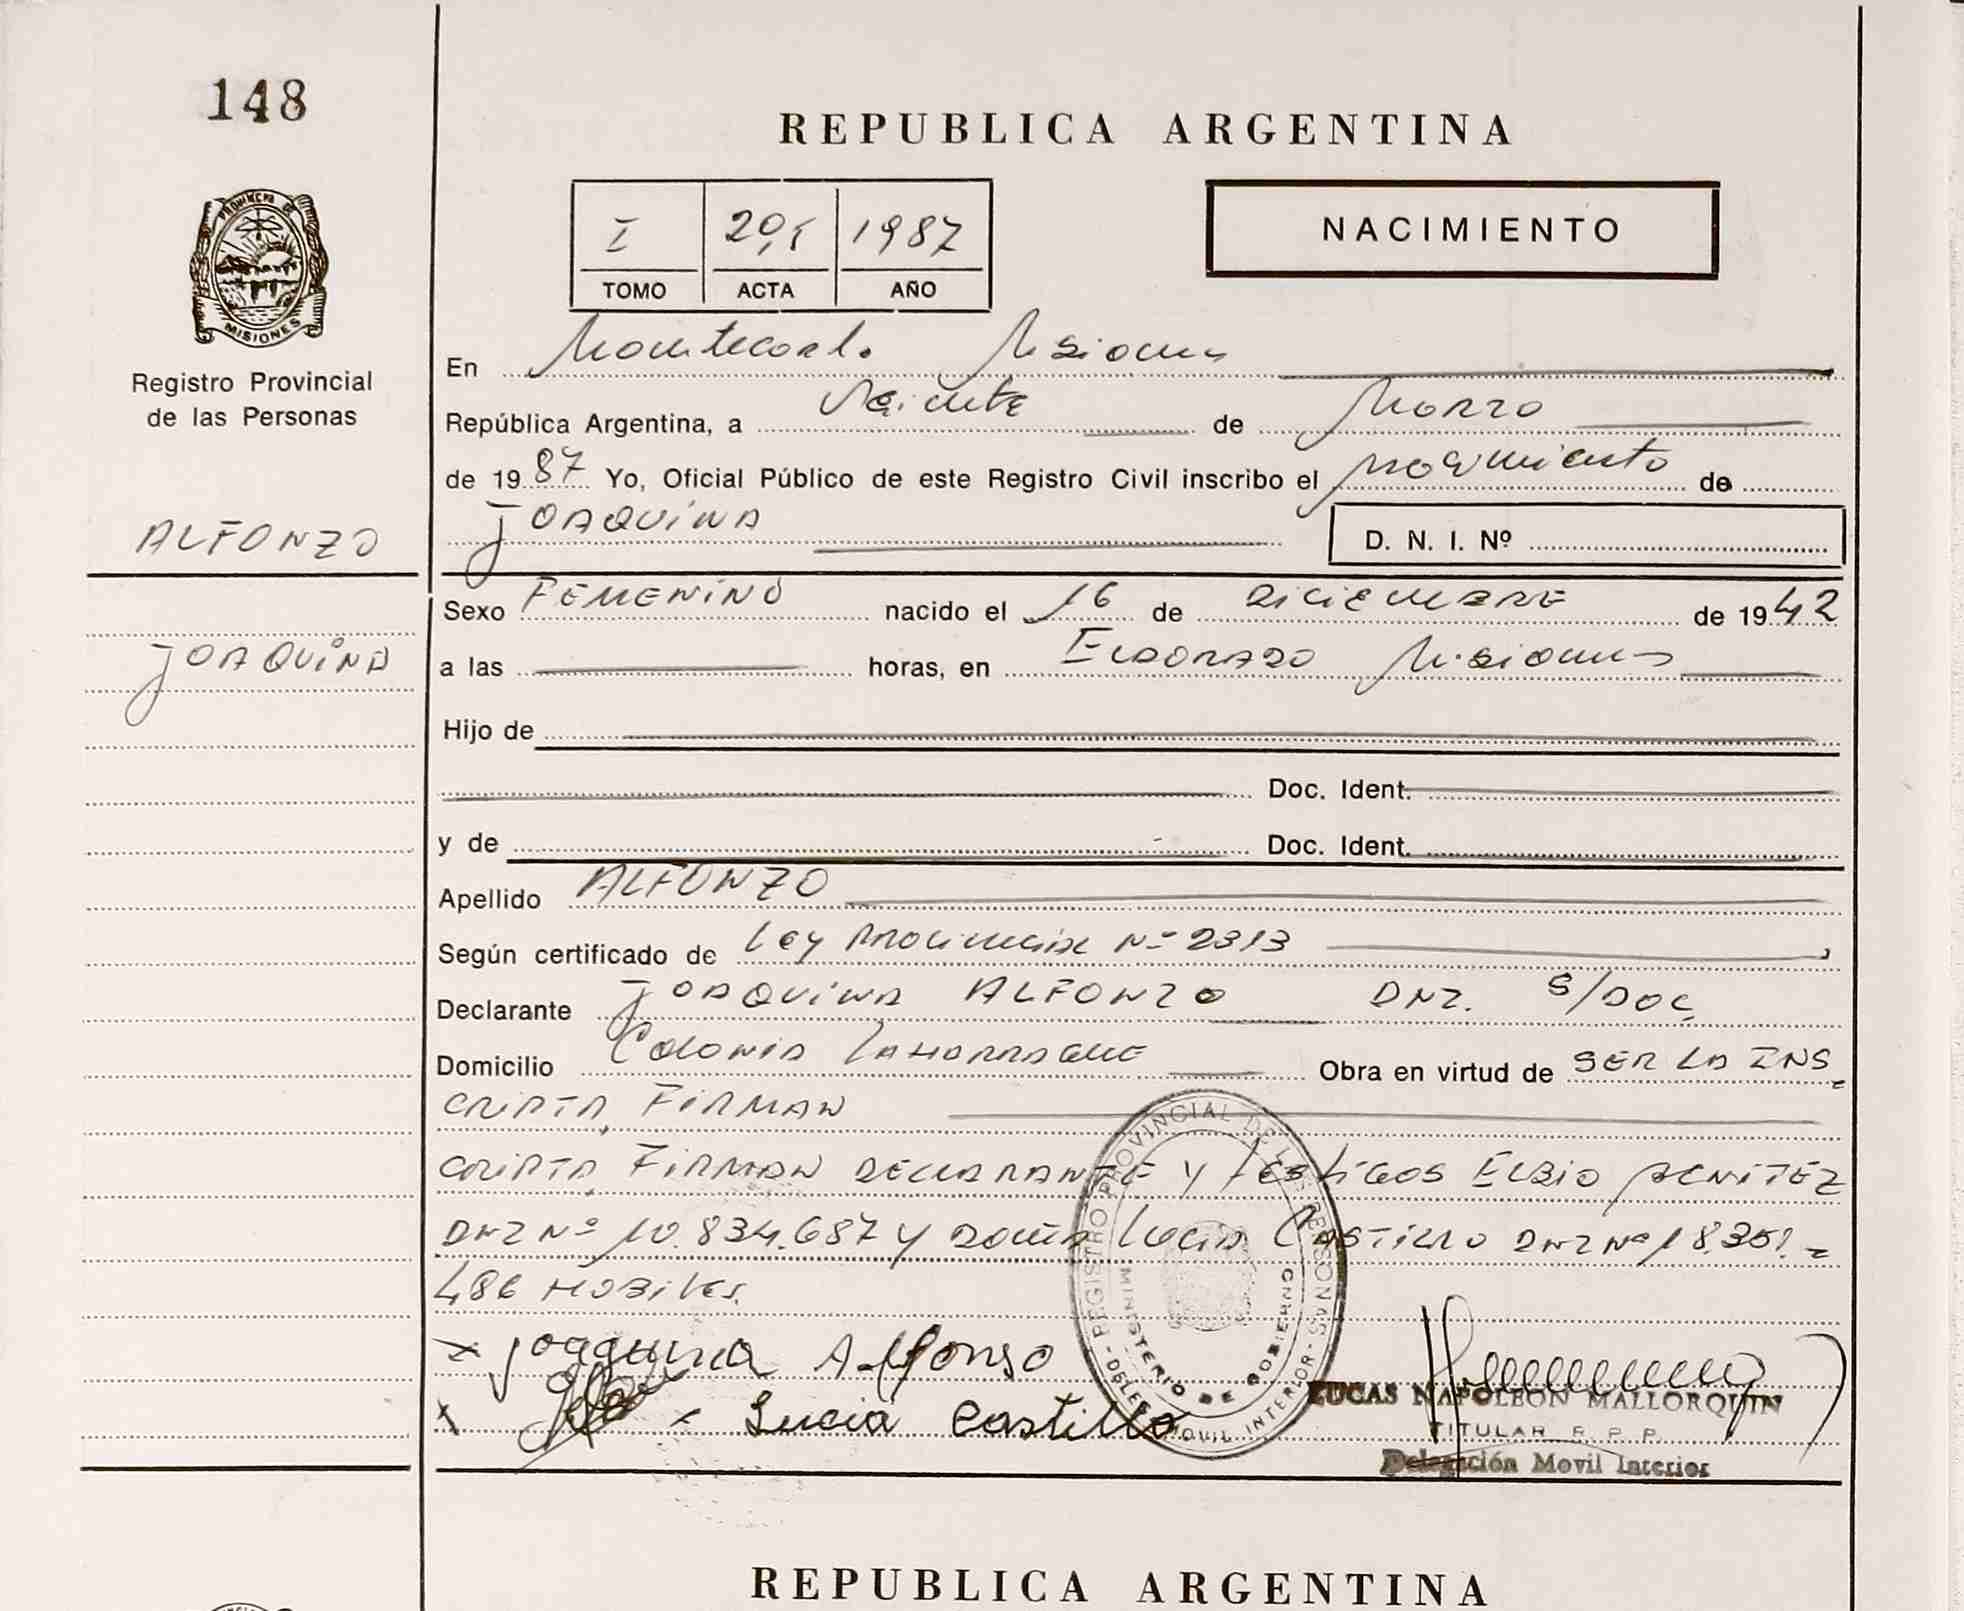 148
REPUBLICA ARGENTINA
I 1987
TOMO ACTA AÑO
NACIMIENTO
PROVINCIA DE
MISIONES
Registro Provincial
de las Personas
En Montecarlo Misiones
República Argentina, a Veinte de Marzo
de 1987 Yo, Oficial Público de este Registro Civil inscribo el nacimiento de
ALFONZO
JOAQUINA
D. N. I. Nº
Sexo FEMENINO nacido el 16 de DICIEMBRE de 1942
JOAQUINA
a las horas, en ELDORADO Misiones
Hijo de
Doc. Ident.
y de Doc. Ident.
Apellido ALFONZO
Según certificado de Ley PROVINCIAL Nº 2313
Declarante JOAQUINA ALFONZO DNI. S/DOC
Domicilio COLONIA LAHARRAGUE Obra en virtud de SER LA INS
CRIPTA, FIRMAN
CRIPTA, FIRMAN DECLARANTE Y TESTIGOS ELBIO BENITEZ
DNI Nº 10.834.687 Y DOÑA LUCIA CASTILLO DNI Nº 18.351.-
486 HABILES.
x Joaquina Alfonso
x Lucia Castillo
REGISTRO PROVINCIAL DE LAS PERSONAS
MINISTERIO DE GOBIERNO
LUCAS NAPOLEON MALLORQUIN
TITULAR R. P. P.
Delegación Movil Interior
REPUBLICA ARGENTINA